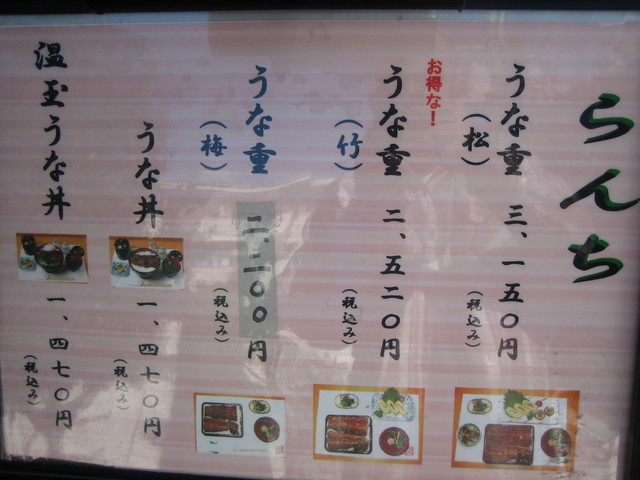 らんち
うな重(松) 三、一五〇円(税込み)
お得な!
うな重(竹) 二、五二〇円(税込み)
うな重(梅) 二、二〇〇円(税込み)
うな丼 一、四七〇円(税込み)
温玉うな丼 一、四七〇円(税込み)